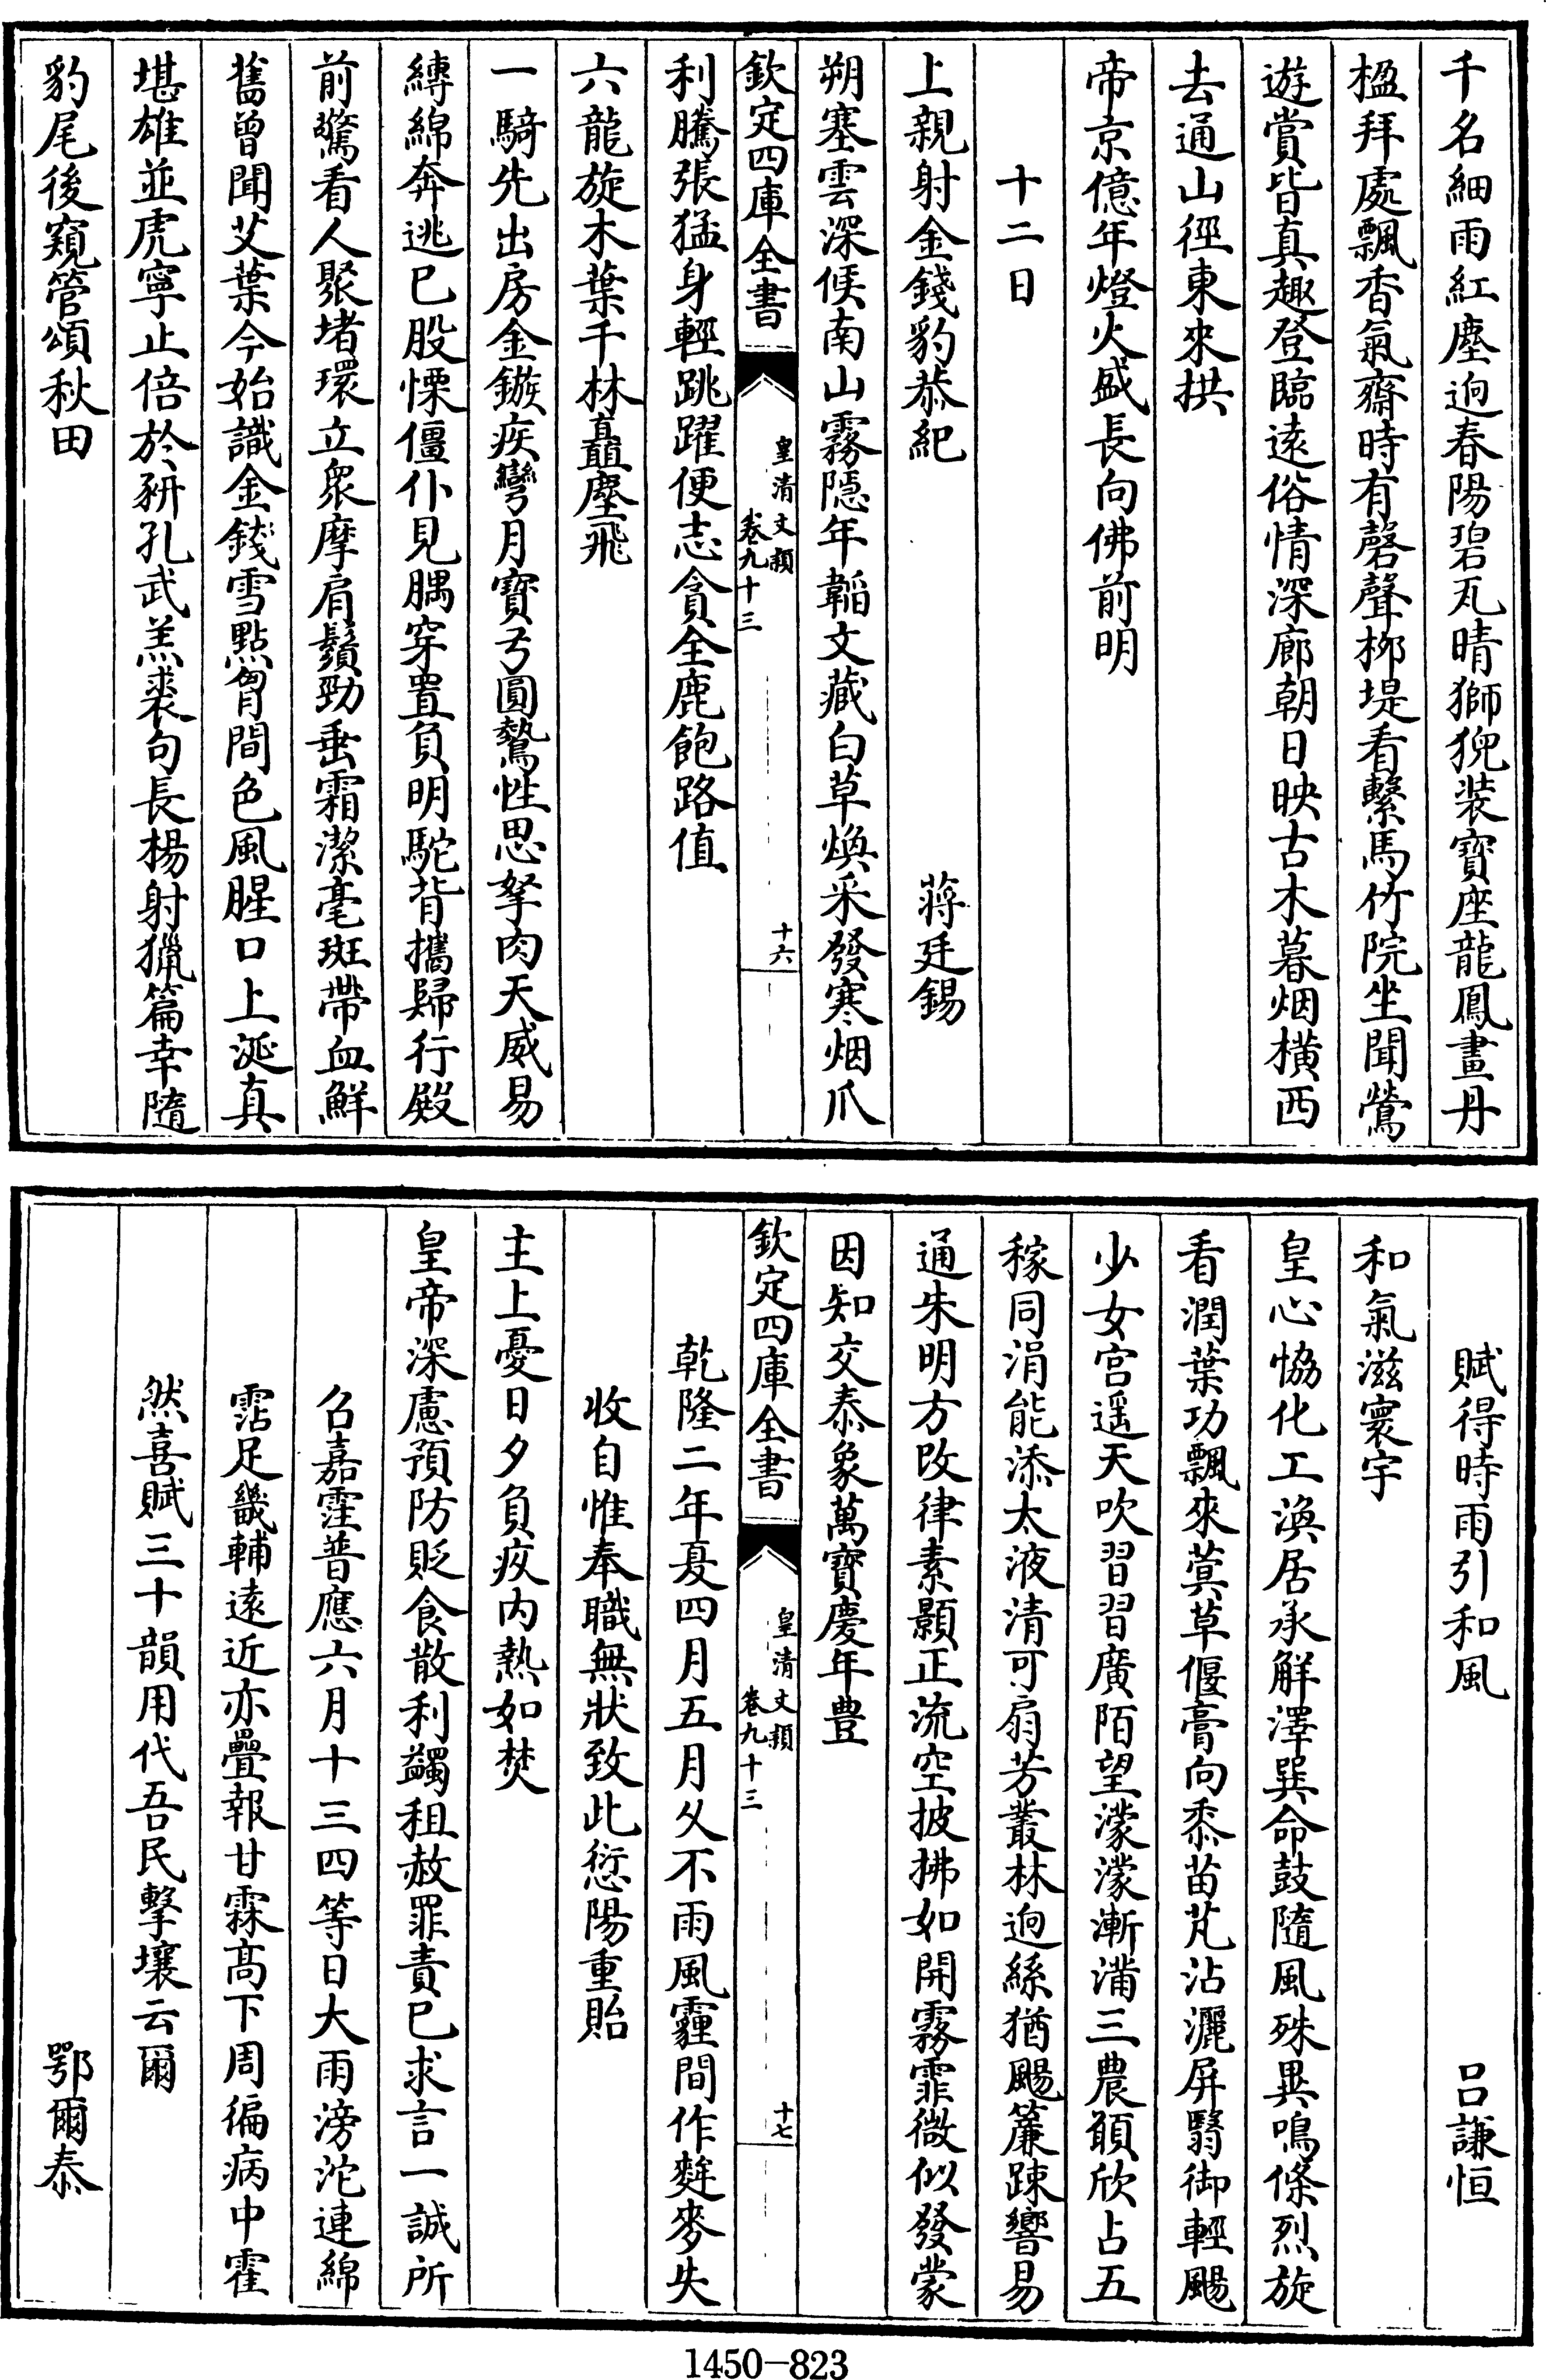 千名細雨紅塵迥春陽碧瓦晴獅猊装寶座龍鳳畫丹
楹拜處飄香氣齋時有磬聲栁堤看繫馬竹院坐聞鶯
遊賞皆真趣登臨遠俗情深廊朝日映古木暮烟横西
去通山徑東來拱
帝京億年燈火盛長向佛前明
十二日
上親射金錢豹恭紀 蔣廷錫
朔塞雲深候南山霧隠年韜文藏白草煥采發寒烟爪
欽定四庫全書 皇清文穎 卷九十三 十六
利騰張猛身輕跳躍便志貪全鹿飽路值
六龍旋木葉千林矗塵飛
一騎先出房金鏃疾彎月寶弓圓驇性思拏肉天威易
縛綿奔逃已股慄僵仆見腢穿置負明駝背攜歸行殿
前驚看人聚堵環立衆摩肩鬚勁垂霜潔毫斑帶血鮮
舊曾聞艾葉今始識金錢雪點胷間色風腥口上涎真
堪雄並虎寧止倍於豣孔武羔裘句長楊射獵篇幸隨
豹尾後窺管頌秋田
賦得時雨引和風 吕謙恒
和氣滋寰宇
皇心恊化工渙居承解澤巽命鼓隨風殊異鳴條烈旋
看潤葉功飄來蓂草偃膏向黍苗芃沾灑屏翳御輕颺
少女宫遥天吹習習廣陌望濛濛漸滿三農願欣占五
稼同涓能添太液清可扇芳叢林迥絲猶颺簾踈響易
通朱明方改律素顥正流空披拂如開霧霏微似發蒙
因知交泰象萬寶慶年豊
欽定四庫全書 皇清文穎 卷九十三 十七
乾隆二年夏四月五月乆不雨風霾間作麰麥失
收自惟奉職無狀致此愆陽重貽
主上憂日夕負疚内熱如焚
皇帝深慮預防貶食散利蠲租赦罪責已求言一誠所
召嘉霔普應六月十三四等日大雨滂沱連綿
霑足畿輔遠近亦疊報甘霖髙下周徧病中霍
然喜賦三十韻用代吾民擊壤云爾
鄂爾泰
1450-823